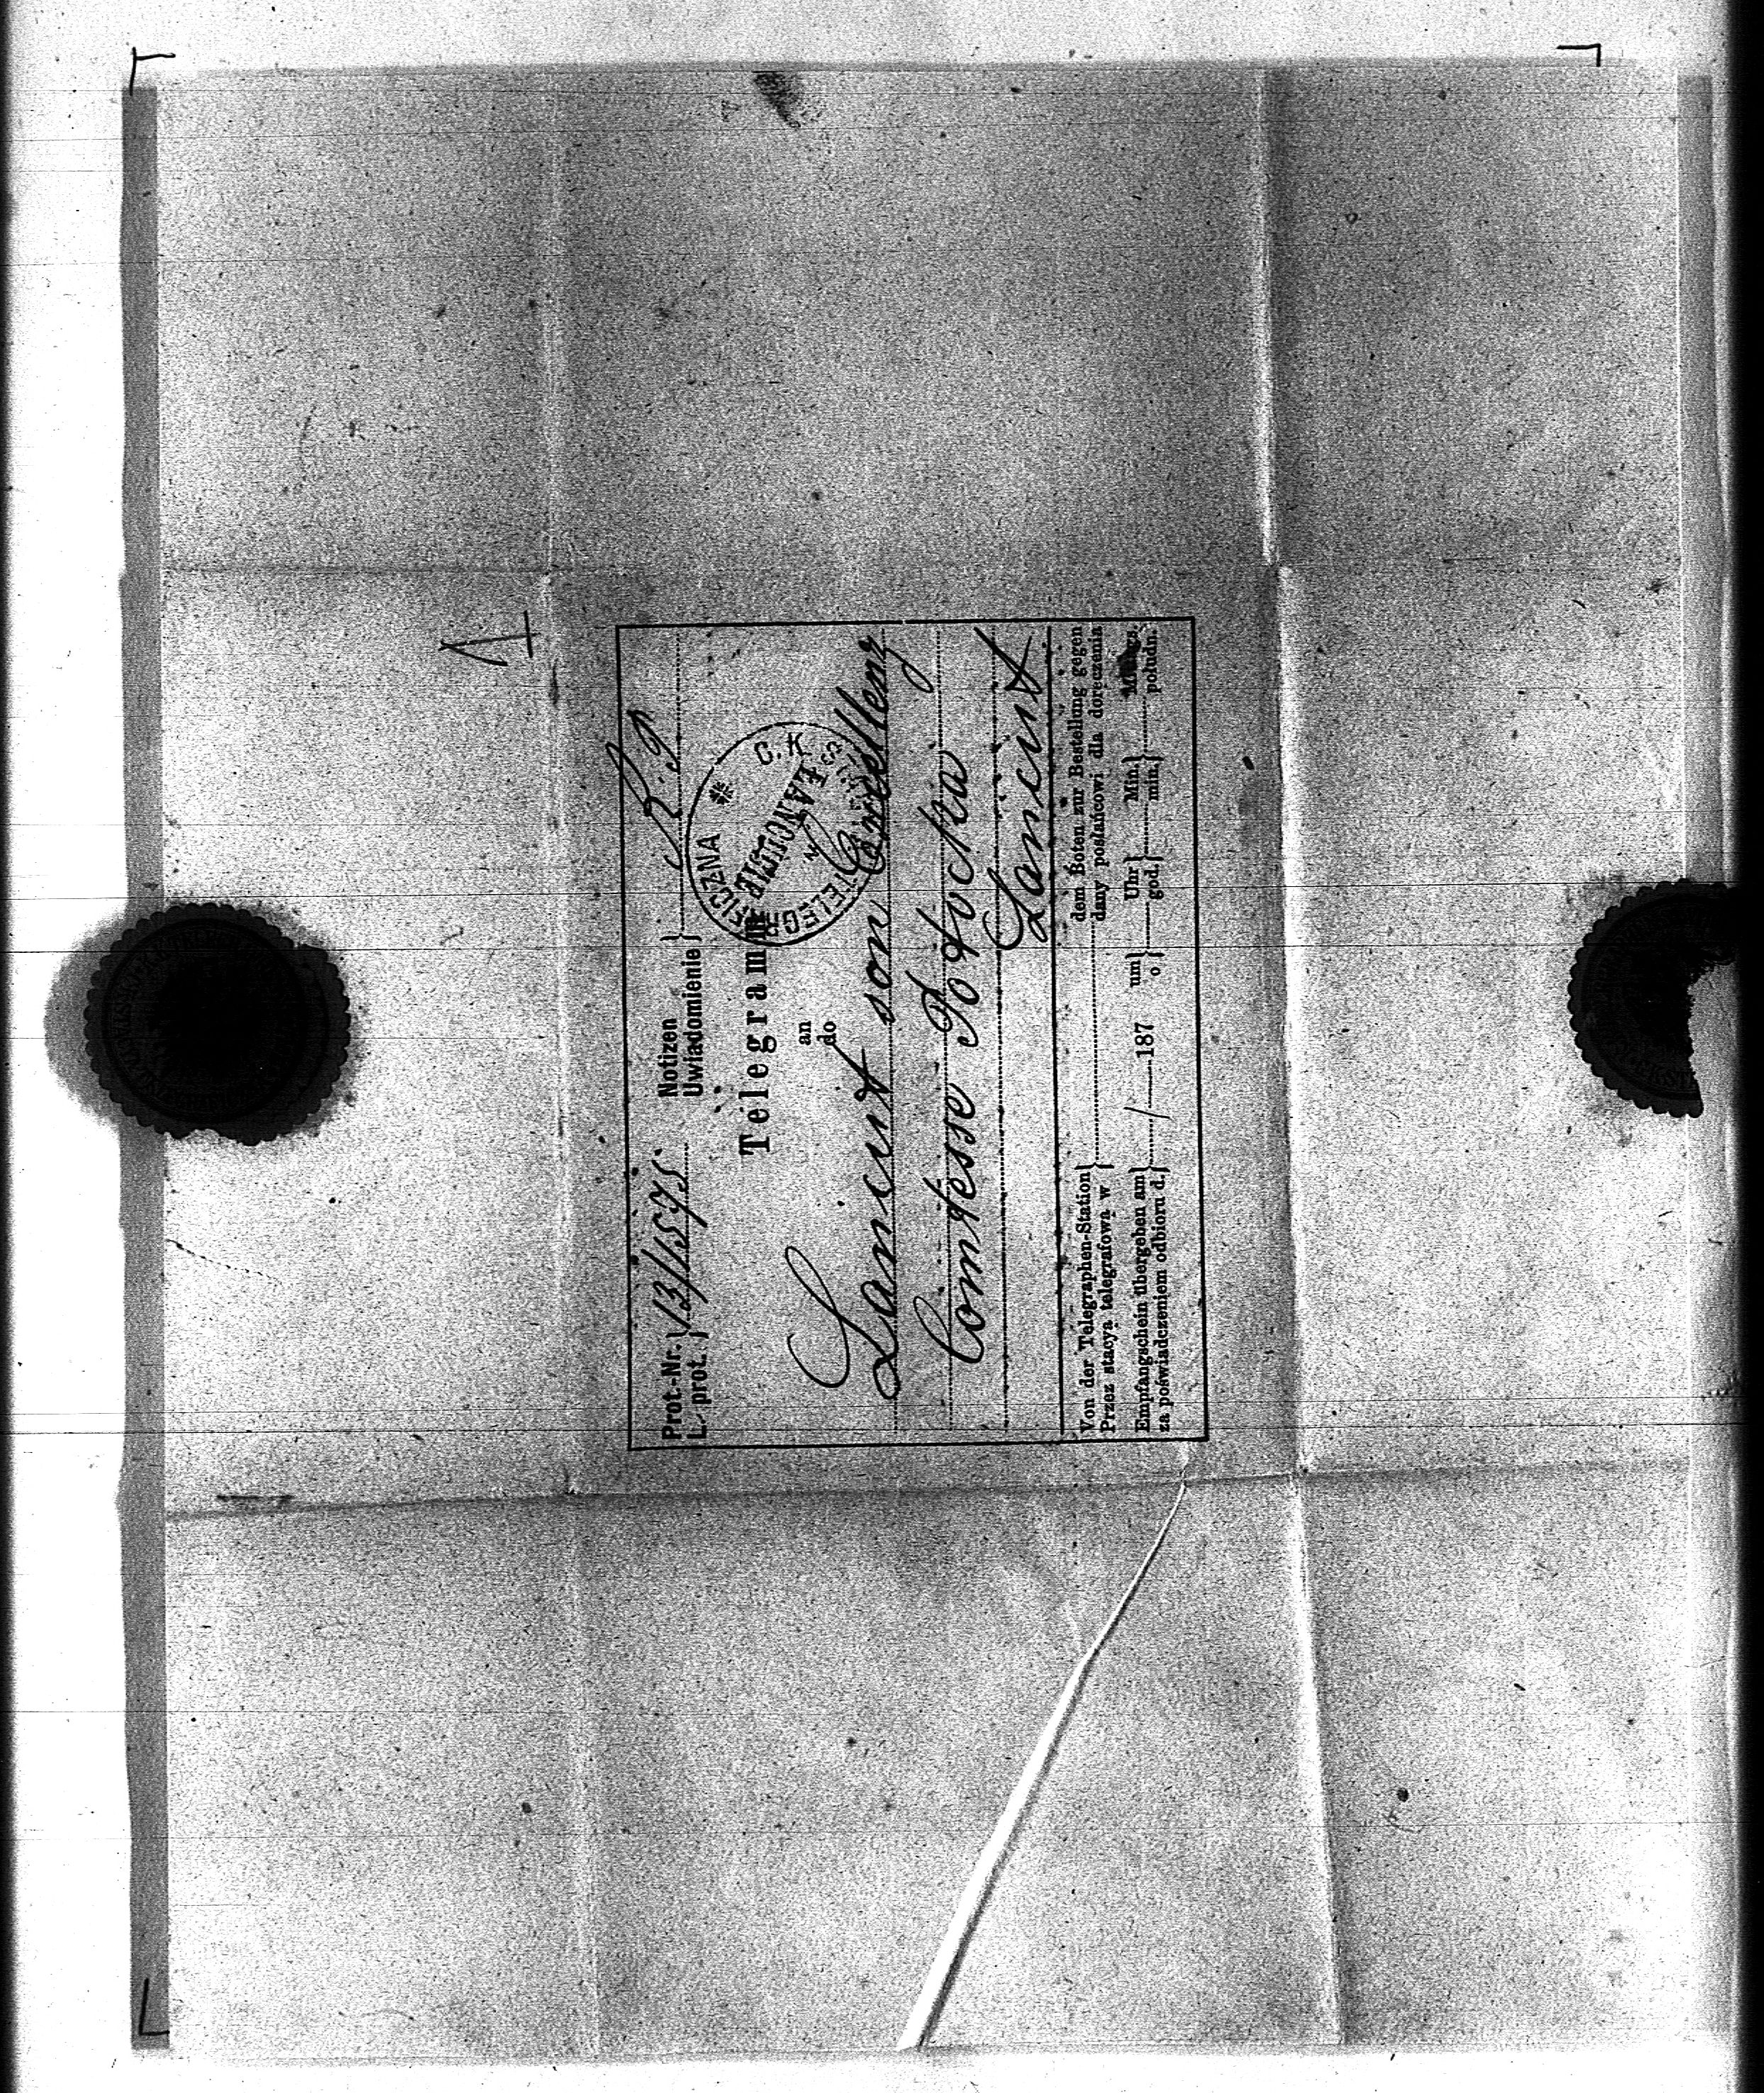 Prot.-Nr. } 13/1575
L. prot. }
Notizen
Uwiadomienie }
R. 9
Telegramm
an
do
C. K.
TELEGRAFICZNA
ŁAŃCUCIE
Lancut son Excellenz
Comtesse Potocka
Lancut
Von der Telegraphen-Station } dem Boten zur Bestellung gegen
Przez stacyą telegrafową w } dany posłańcowi dla doręczenia
Empfangschein übergeben am } / 187 um } Uhr } Min. }
za poświadczeniem odbioru d. } o } god. } min. } południ.